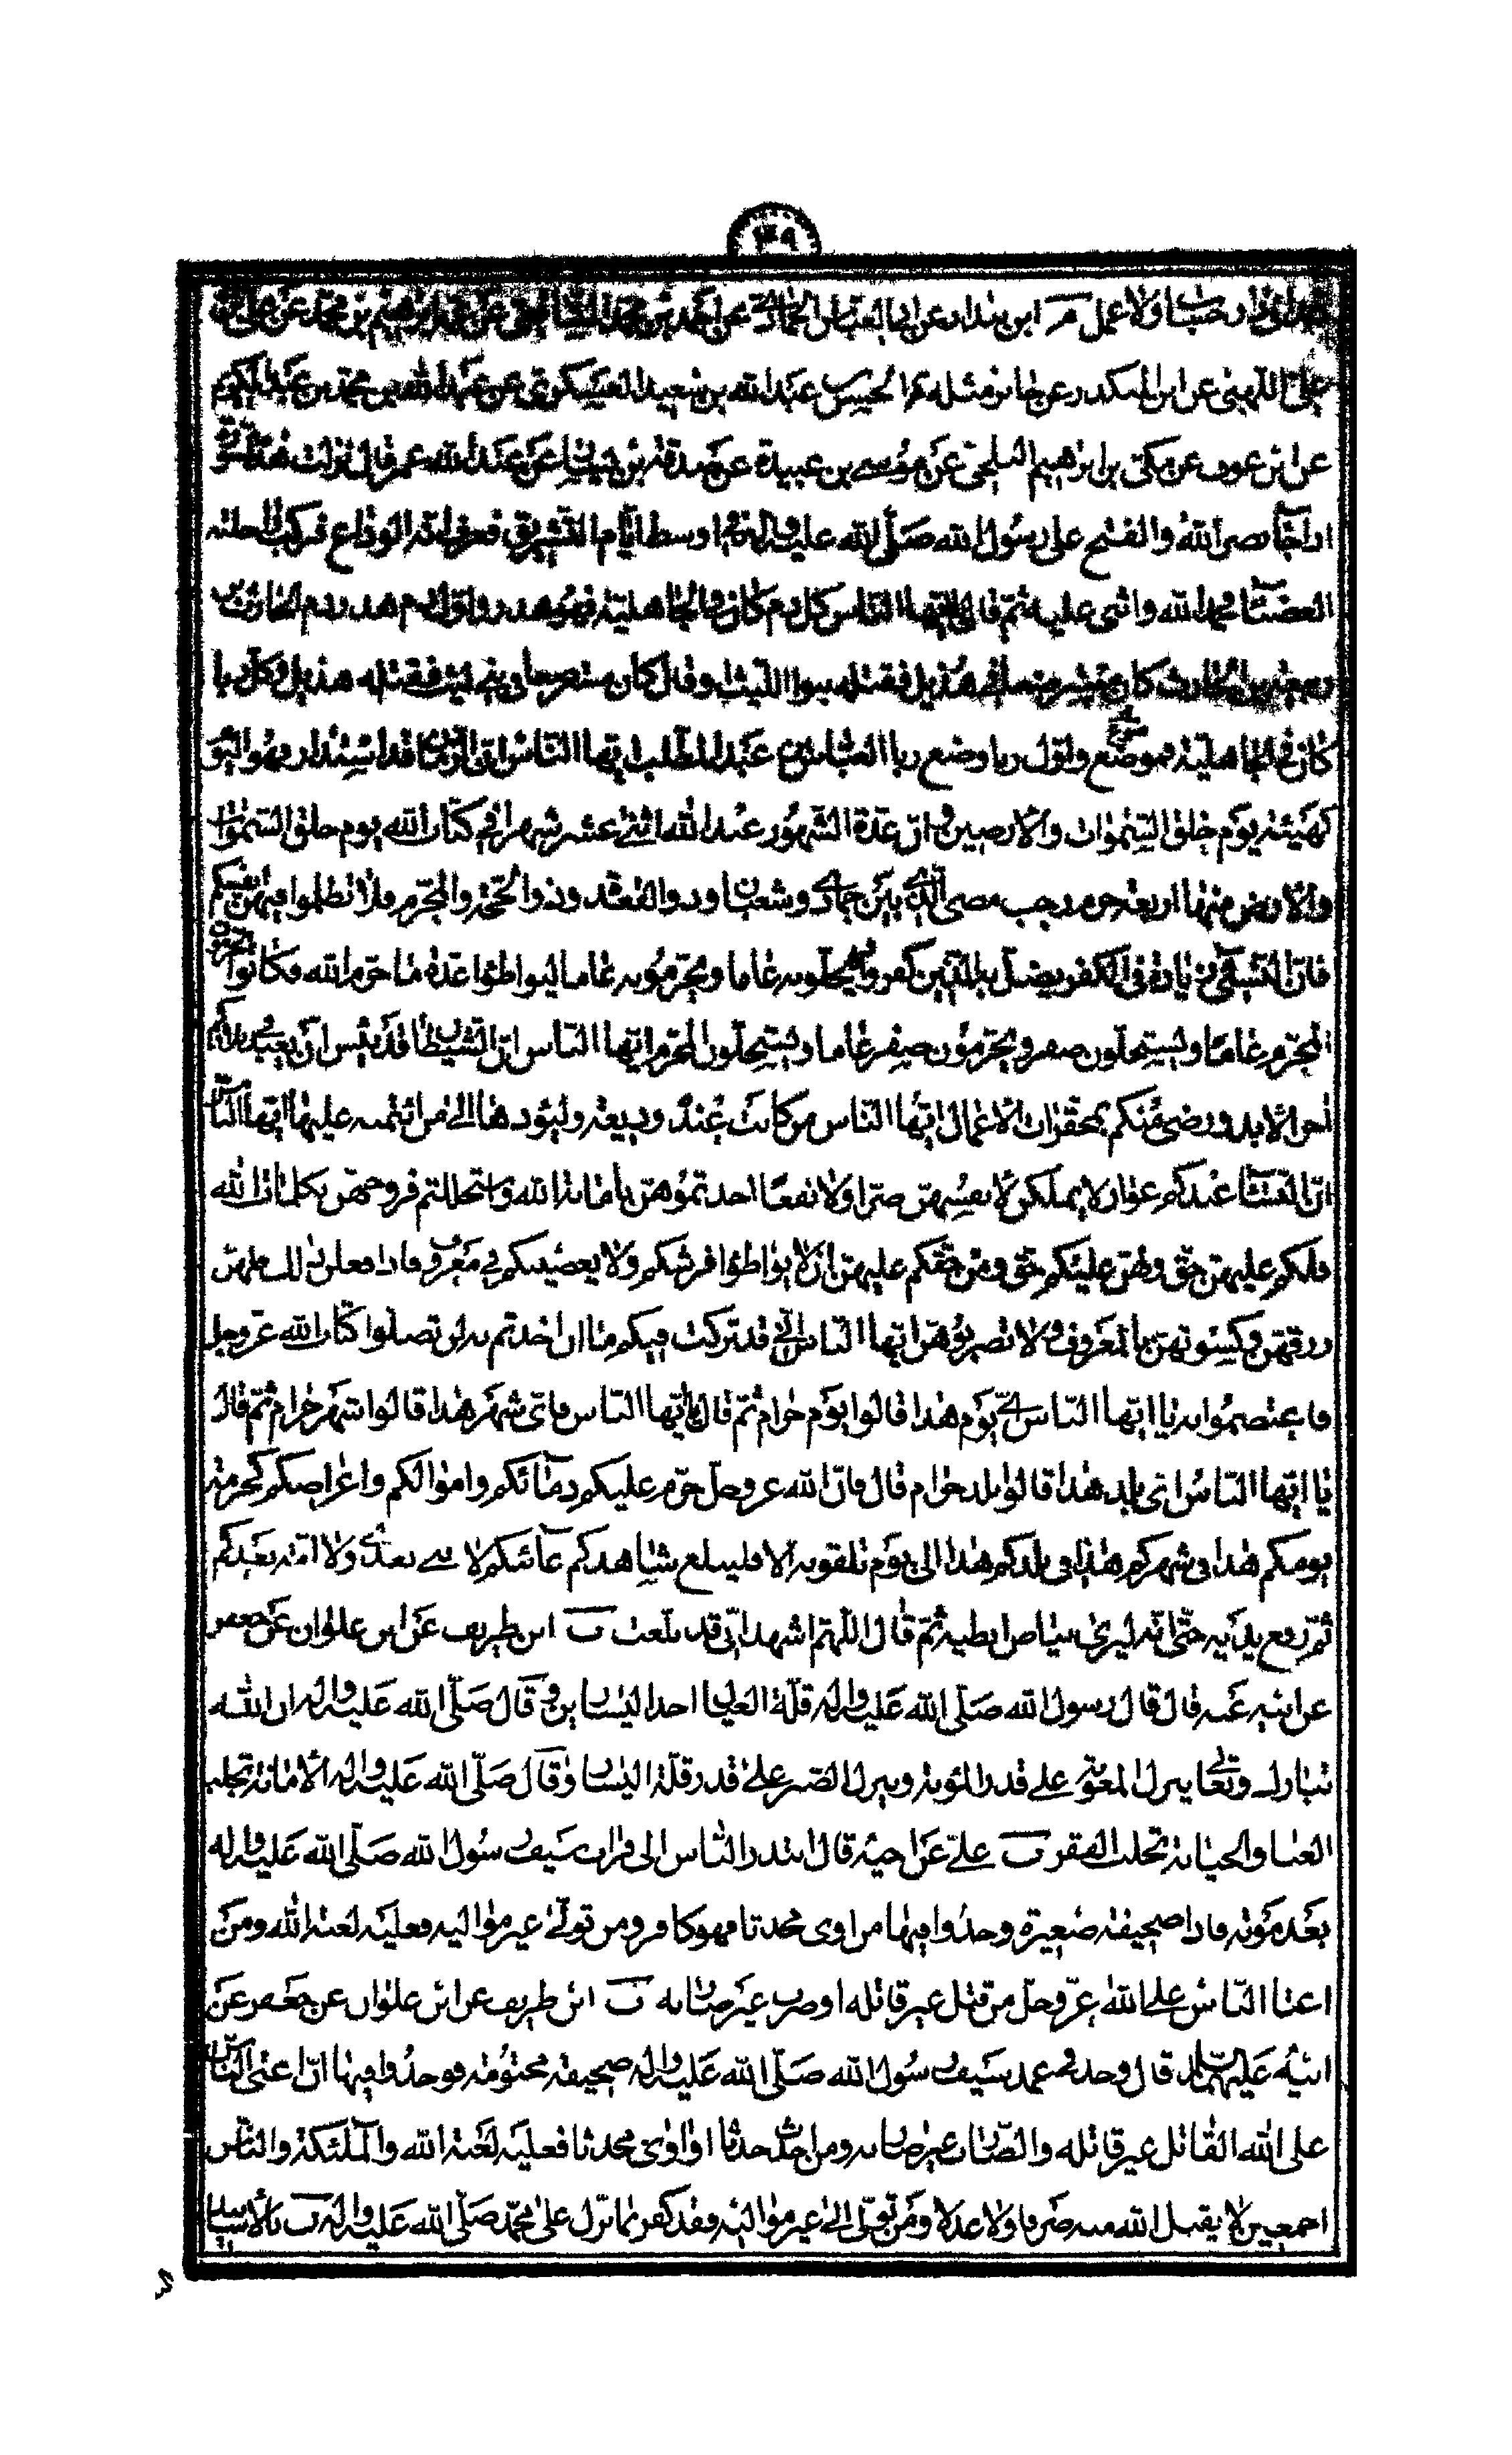 ٣٩
ولا عمل مر ابن بندار عن ابى العباس الحمادى عن احمد بن محمد الشافعى عن عمه ابرهيم بن محمد عن على
على اللهبى عن ابن المنكدر عن جابر مثله ل الحسن بن عبد الله بن سعيد العسكرى عن عبد الله بن محمد بن عبد الكريم
عن ابن عون عن مكى بن ابرهيم البلخى عن موسى بن عبيدة عن صدقة بن يسار عن عبد الله عمر قال نزلت هذه السورة
اذا جاء نصر الله والفتح على رسول الله صلى الله عليه واله فى اوسط ايام التشريق فعرف انه الوداع فركب راحلته
العضباء فحمد الله واثنى عليه ثم قال ايها الناس كل دم كان فى الجاهلية فهو هدر واول دم هدر دم الحارث بن
ربيعة بن الحارث كان مسترضعا فى هذيل فقتله بنوا الليث او قال كان مسترضعا فى بنى ليث فقتله هذيل وكل ربا
كان فى الجاهلية فموضوع واول ربا وضع ربا العباس بن عبد المطلب ايها الناس ان الزمان قد استدار فهو اليوم
كهيئته يوم خلق السموات والارضين وان عدة الشهور عند الله اثنى عشر شهرا فى كتاب الله يوم خلق السموات
والارض منها اربعة حرم رجب مضر الذى بين جمادى وشعبان وذو القعدة وذو الحجة والمحرم فلا تظلموا فيهن انفسكم
فان النسىء زيادة فى الكفر يضل به الذين كفروا يحلونه عاما ويحرمونه عاما ليواطؤا عدة ما حرم الله فكانوا يحرمون
المحرم عاما ويستحلون صفر ويحرمون صفر عاما ويستحلون المحرم ايها الناس ان الشيطان قد يئس ان يعبد فى بلادكم
اخر الابد ورضى منكم بمحقرات الاعمال ايها الناس من كانت عنده وديعة وليؤدها الى من ائتمنه عليها ايها الناس
ان النساء عندكم عوار لا يملكن لانفسهن ضرا ولا نفعا اخذتموهن بامانة الله واستحللتم فروجهن بكلمات الله
فلكم عليهن حق ولهن عليكم حق ومن حقكم عليهن ان لا يواطؤا فرشكم ولا يعصينكم فى معروف فاذا فعلن ذلك فلهن
رزقهن وكسوتهن بالمعروف ولا تضربوهن ايها الناس انى قد تركت فيكم ما ان اخذتم به لن تضلوا كتاب الله عز وجل
فاعتصموا به يا ايها الناس اى يوم هذا قالوا يوم حرام ثم قال يا ايها الناس فاى شهر هذا قالوا شهر حرام ثم قال
يا ايها الناس اى بلد هذا قالوا بلد حرام قال فان الله عز وجل حرم عليكم دمائكم واموالكم واعراضكم كحرمة
يومكم هذا فى شهركم هذا فى بلدكم هذا الى يوم تلقونه الا فليبلغ شاهدكم غائبكم لا نبى بعدى ولا امة بعدكم
ثم رفع يديه حتى انه ليرى بياض ابطيه ثم قال اللهم اشهد انى قد بلغت ب ابن طريف عن ابن علوان عن جعفر
عن ابيه عنه قال قال رسول الله صلى الله عليه واله قلة العيال احد اليسارين وقال صلى الله عليه واله ان الله
تبارك وتعالى ينزل المعونة على قدر المؤنة وينزل الصبر على قدر قلة اليسار وقال صلى الله عليه واله الامانة تجلب
الغنا والخيانة تجلب الفقر ب على عن اخيه قال ابتدر الناس الى قراب سيف رسول الله صلى الله عليه واله
بعد موته فاذا صحيفة صغيرة وجدوا فيها من اوى محدثا فهو كافر ومن تولى غير مواليه فعليه لعنة الله ومن
اعتا الناس على الله عز وجل من قتل غير قاتله او ضرب غير ضاربه ب ابن طريف عن ابن علوان عن جعفر عن
ابيه عليهما السلام قال وجد فى غمد سيف رسول الله صلى الله عليه واله صحيفة مختومة فوجدوا فيها ان اعتى الناس
على الله القاتل غير قاتله والضارب غير ضاربه ومن احدث حدثا او اوى محدثا فعليه لعنة الله والملئكة والناس
اجمعين لا يقبل الله منه صرفا ولا عدلا ومن تولى الى غير مواليه فقد كفر بما انزل على محمد صلى الله عليه واله ب بالاسانيد